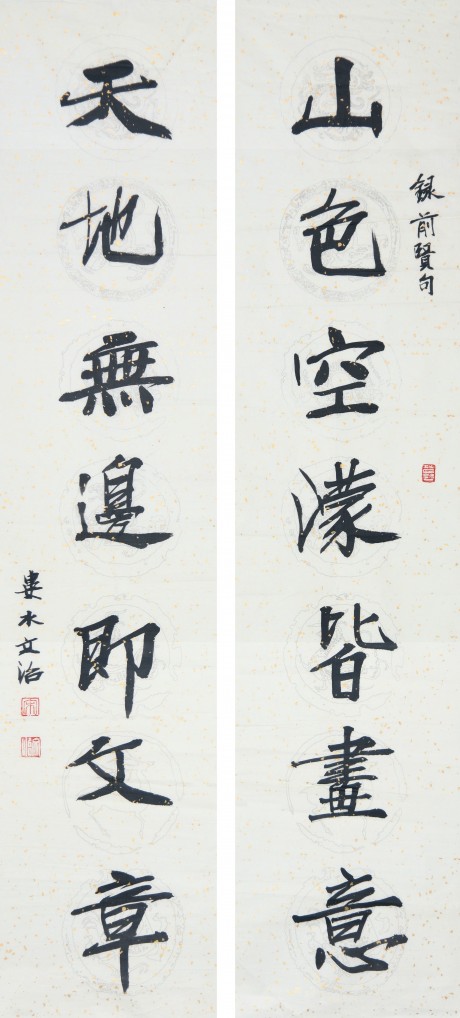 山色空濛皆畫意
録前賢句
天地無邊即文章
婁水文治